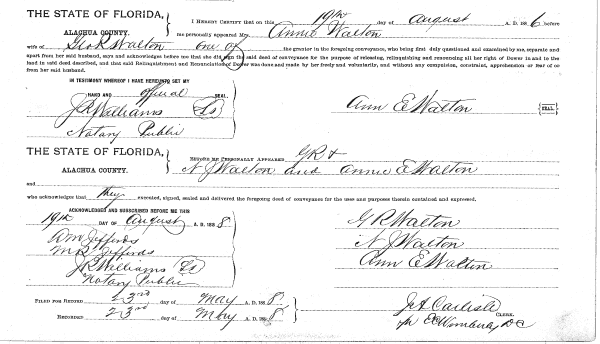 THE STATE OF FLORIDA,
ALACHUA COUNTY.
I HEREBY CERTIFY that on this 19th day of August A. D. 188 6 before
me personally appeared Annie Walton
wife of Geo R Walton one of the grantor in the foregoing conveyance, who being first duly questioned and examined by me, separate and
apart from her said husband, says and acknowledges before me that she did sign the said deed of conveyance for the purpose of releasing, relinquishing and renouncing all her right of Dower in and to the
land in said deed described, and that said Relinquishment and Renunciation of Dower was done and made by her freely and voluntarily, and without any compulsion, constraint, apprehension, or fear of or
from her said husband.
IN TESTIMONY WHEREOF I HAVE HEREUNTO SET MY
HAND AND official SEAL.
J R Williams Ls
Notary Public
Ann E Walton
SEAL
THE STATE OF FLORIDA,
ALACHUA COUNTY.
BEFORE ME PERSONALLY APPEARED G R &
N J Walton and Annie E Walton
and
who acknowledges that they executed, signed, sealed and delivered the foregoing deed of conveyance for the uses and purposes therein contained and expressed.
ACKNOWLEDGED AND SUBSCRIBED BEFORE ME THIS
19th DAY OF August A. D. 188 8
A M Jeffords
M R Jeffords
J R Williams Ls
Notary Public
G R Walton
N J Walton
Ann E Walton
FILED FOR RECORD 23rd day of May A. D. 188 8
RECORDED 23rd day of May A. D. 188 8
J A Carlisle
CLERK.
DC